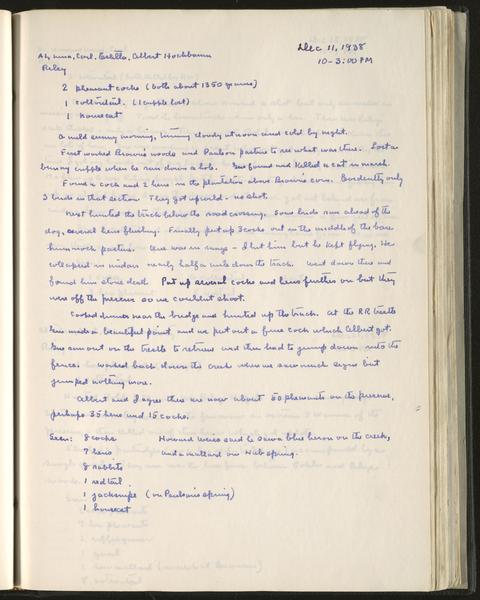 AL, Nina, Carl, Estella, Albert Hochbaum
Riley
Dec 11, 1938
10-3:00 PM
2 pheasant cocks (both about 1350 grams)
1 cottontail. (1 cripple lost)
1 housecat
A mild sunny morning, turning cloudy at noon and cold by night.
First worked Brown's woods and Paulson pasture to see what was there. Lost a
bunny cripple when he ran down a hole. Gus found and killed a cat in marsh.
Found a cock and 2 hens in the plantation above Brown's corn. Evidently only
3 birds in that section. They got up wild - no shot.
Next hunted the track below the road crossing. Some birds ran ahead of the
dog, several hens flushing. Finally put up 3 cocks out in the middle of the bare
hummock pasture. One was in range - I hit him but he kept flying. He
collapsed in midair nearly half a mile down the track. Went down there and
found him stone dead. Put up several cocks and hens further on but they
were off the preserve so we couldn't shoot.
Cooked dinner near the bridge and hunted up the track. At the RR trestle
Gus made a beautiful point and we put out a fine cock which Albert got.
Gus ran out on the trestle to retrieve and then had to jump down into the
creek. Worked back down the creek where we saw much sign but
jumped nothing more.
Albert and I agree there are now about 50 pheasants on the preserve,
perhaps 35 hens and 15 cocks.
Seen: 8 cocks
7 hens
8 rabbits
1 redtail
1 jacksnipe (on Paulson's spring)
1 housecat
Howard Weiss said he saw a blue heron on the creek,
and a mallard on spring.